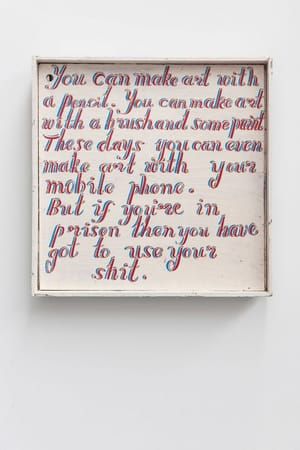 You can make art with
a pencil. You can make art
with a brush and some paint.
These days you can even
make art with your
mobile phone.
But if you're in
prison then you have
got to use your
shit.